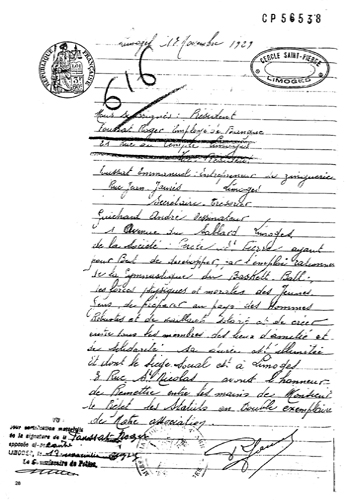 CP56538
Limoges 17 Novembre 1929
RÉPUBLIQUE FRANÇAISE
CERCLE SAINT-PIERRE
LIMOGES
616
Nous Soussignés : Président
Toussat Roger Employé de Banque
21 Rue du
Président
Toussat Emmanuel Entrepreneur de zinguerie
Rue Jean Jaurès Limoges
Secrétaire Trésorier
Guichard André Dessinateur
1 Avenue du Sablard Limoges
de la Société : Cercle St Pierre ayant
pour But de développer, par l'emploi rationnel
de la Gymnastique du Baskett Ball,
les forces physiques et morales des Jeunes
Gens, de préparer au pays des Hommes
Robustes et de vaillants soldats et de créer
entre tous les membres des liens d'amitié et
de Solidarité sa durée est illimitée
et dont le siège Social est à Limoges
3 Rue St Nicolas avons l'honneur
de Remettre entre les mains de Monsieur
le Préfet des Statuts en Double exemplaire
de Notre association.
VU :
pour certification matérielle
de la signature de Toussat Roger
apposée
LIMOGES, le 17 novembre 1929
Le Commissaire de Police,
26